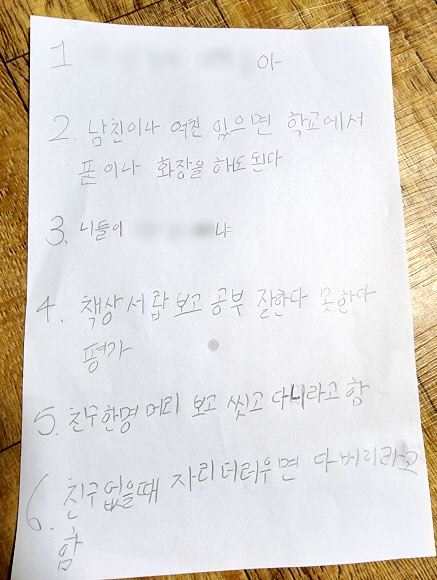 1 아
2. 남친이나 여친 있으면 학교에서
폰이나 화장을 해도된다
3. 니들이 냐
4. 책상 서랍 보고 공부 잘한다 못한다
평가
5. 친구한명 머리 보고 씻고 다니라고 함
6. 친구없을때 자리더러우면 다버리라고
함